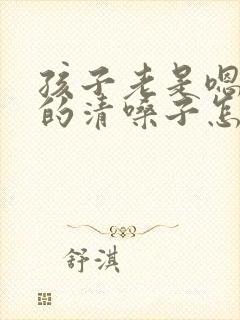 孩子老是嗯
的清嗓子怎
舒淇